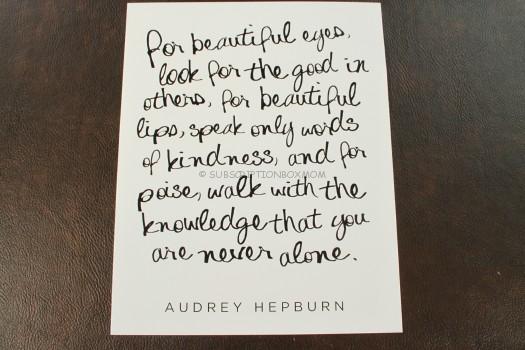 For beautiful eyes,
look for the good in
others, for beautiful
lips, speak only words
of kindness, and for
© SUBSCRIPTIONBOXMOM
poise, walk with the
knowledge that you
are never alone.
AUDREY HEPBURN